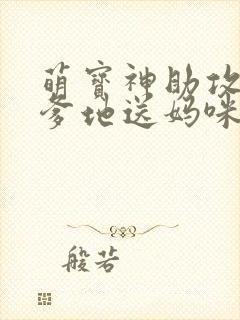 萌宝神助攻
爹地送妈咪
般若